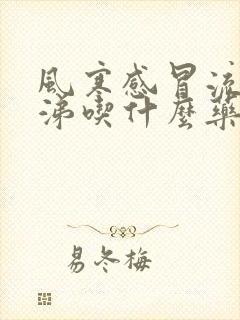 風寒感冒流
涕喫什麼藥
易冬梅